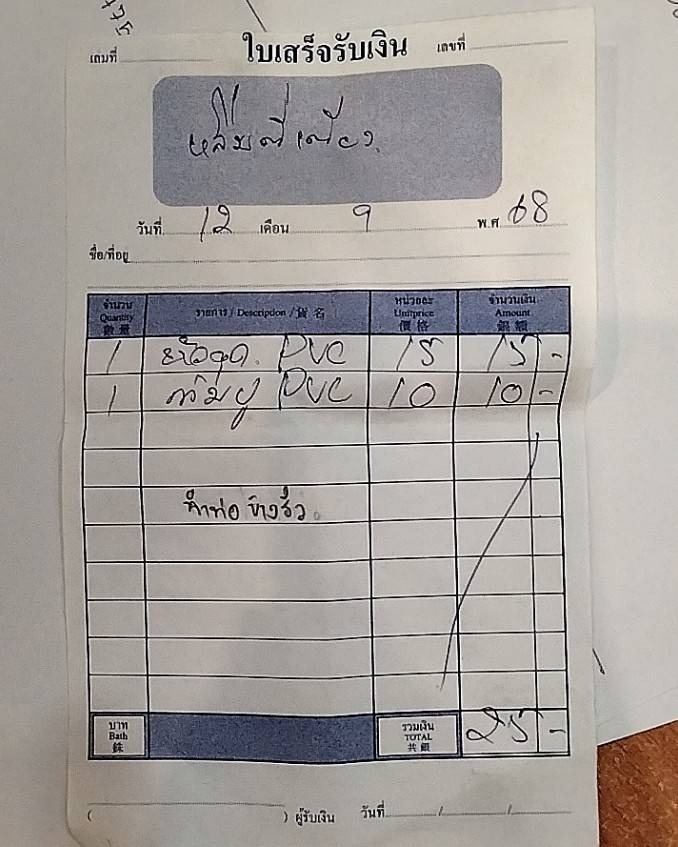 เล่มที่ ใบเสร็จรับเงิน เลขที่
วันที่ 12 เดือน 9 พ.ศ 68
ชื่อ/ที่อยู่
จำนวน รายการ / Description / 貨 名 หน่วยละ จำนวนเงิน
Quantity Unitprice Amount
數 量 價 格 銀 額
1 PVC 15 15 -
1 PVC 10 10 -
ทำท่อ ข้างรั้ว
บาท รวมเงิน 25 -
Bath TOTAL
銖 共 銀
( ) ผู้รับเงิน วันที่ / /